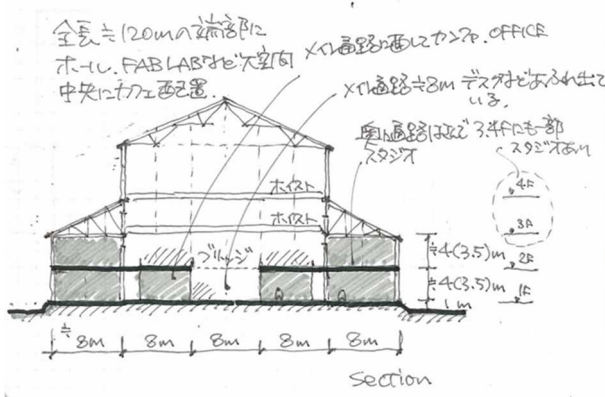 全長≒120mの端部に
ホール、FAB LABなど大空間
中央にカフェ配置.
メイン通路に面してカンファ、OFFICE
メイン通路≒8m デスクなどあふれ出て
いる。
奥に通路はさんで3,4Fにも一部
スタジオ
スタジオあり
ホイスト
ホイスト
ブリッジ
4F
3F
2F
1F
≒4(3.5)m
≒4(3.5)m
1m
≒
8m 8m 8m 8m 8m
section